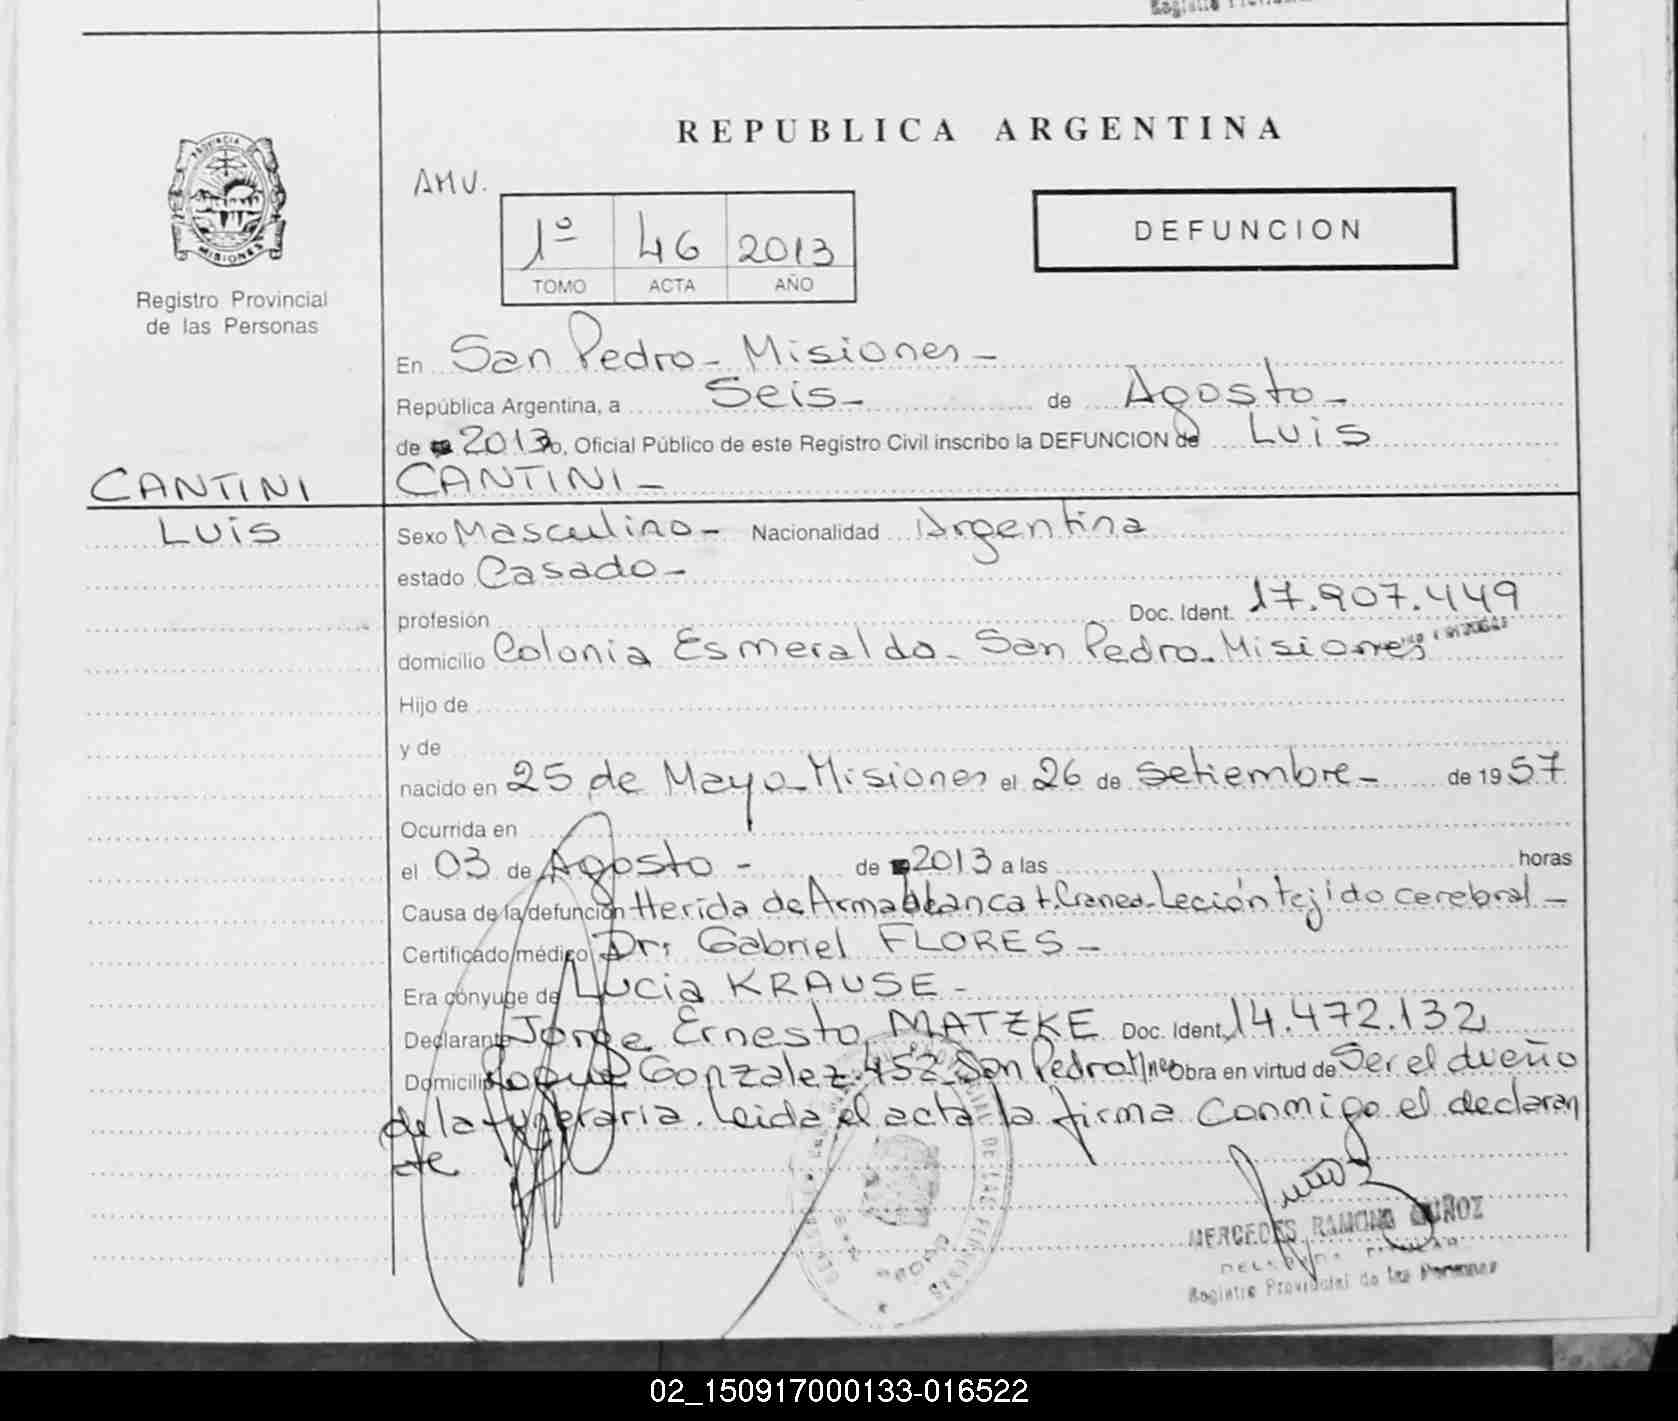 REPUBLICA ARGENTINA
PROVINCIA
MISIONES
Registro Provincial
de las Personas
AMV.
1º 46 2013
TOMO ACTA AÑO
DEFUNCION
En San Pedro - Misiones -
República Argentina, a Seis - de Agosto -
de 2013 yo, Oficial Público de este Registro Civil inscribo la DEFUNCION de Luis
CANTINI CANTINI -
Luis Sexo Masculino - Nacionalidad Argentina
estado Casado -
profesión Doc. Ident. 17.907.449
domicilio Colonia Esmeralda - San Pedro - Misiones
Hijo de
y de
nacido en 25 de Mayo - Misiones el 26 de Setiembre - de 1957
Ocurrida en
el 03 de Agosto - de 2013 a las horas
Causa de la defunción Herida de Arma blanca + Craneo - Leción tejido cerebral -
Certificado médico Dr: Gabriel FLORES -
Era cónyuge de Lucia KRAUSE -
Declarante Jorge Ernesto MATZKE Doc. Ident. 14.472.132
Domicilio Roque Gonzalez 452 San Pedro Mnes Obra en virtud de Ser el dueño
de la funeraria. Leida el acta la firma conmigo el declaran
te
MERCEDES RAMONA MUÑOZ
DELEGADA TITULAR
Registro Provincial de las Personas
02_150917000133-016522